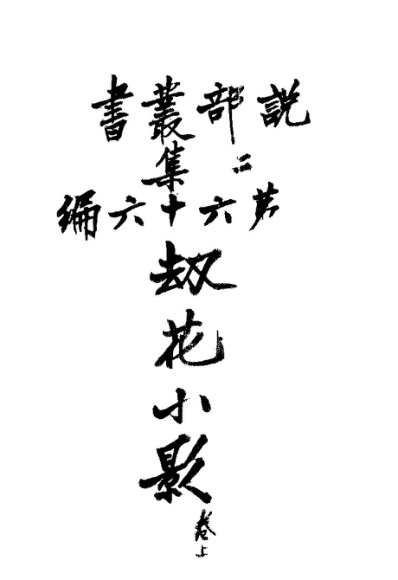 說部叢書
二集
第六十六編
劫花小影
卷上